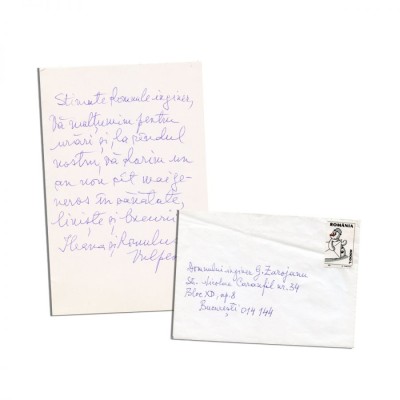 Stimate Domnule inginer,
Vă mulțumim pentru
urări și, la rândul
nostru, vă dorim un
an nou cât mai ge-
neros în sănătate,
liniște și bucurii.
Ileana și Romulus
Vulpescu
ROMÂNIA
Domnului inginer G. Zarojanu
St. Nicolae Caranfil nr. 34
Bloc XD, ap. 8
București 014 144